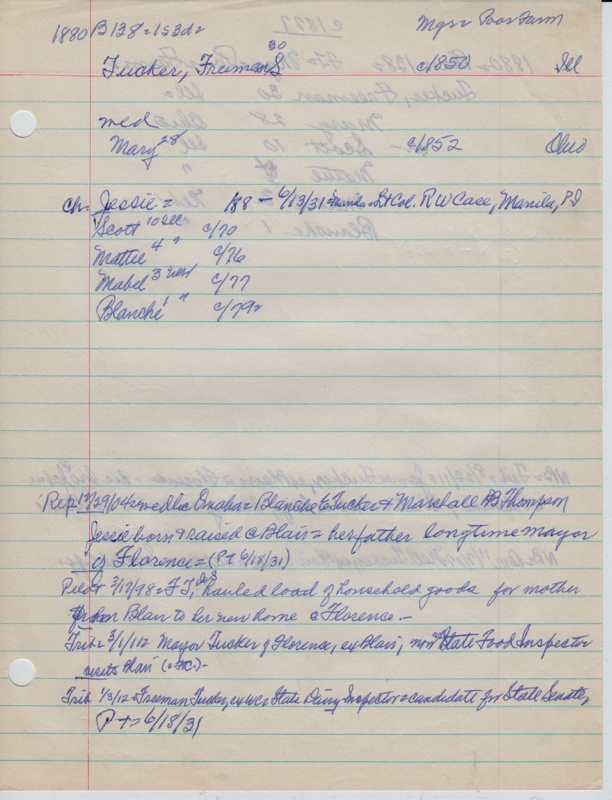 c1877
1880 B138=153d= Mgr= Poor Farm
Tucker, Freeman S 30 c1850 Ill
med
Mary 28 c1852 Ohio
ch. Jessie = 188 - 6/13/31 = Manila = Lt Col. R W Case, Manila, P.I
Scott 10 Ill c/70
Mattie 4 " c/76
Mabel 3 Neb c/77
Blanche 1 " c/79=
Rep. 12/29/04 = med c Omaha = Blanche G Tucker + Marshall B Thompson
Jessie born + raised c Blair = her father longtime mayor
of Florence = (P-T 6/18/31)
Pilot 3/17/98 = F T, hauled load of household goods for mother
from Blair to her new home c Florence -
Trib = 3/1/112 Mayor Tucker of Florence, ex Blair, now State Food Inspector
visits Blair
Trib 1/3/12 = Freeman Tucker, ex WC = State Dairy Inspector = candidate for State Senate,
P-T = 6/18/31